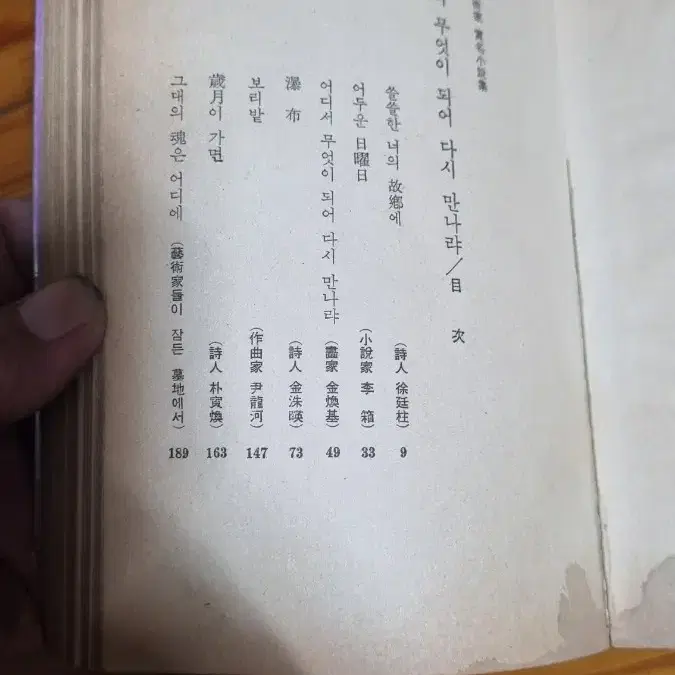 術家 實名小說集
무엇이 되어 다시 만나랴/目 次
쓸쓸한 너의 故鄕에 (詩人 徐廷柱) 9
어두운 日曜日 (小說家 李 箱) 33
어디서 무엇이 되어 다시 만나랴 (畵家 金煥基) 49
瀑 布 (詩人 金洙暎) 73
보리밭 (作曲家 尹龍河) 147
歲月이 가면 (詩人 朴寅煥) 163
그대의 魂은 어디에 (藝術家들이 잠든 墓地에서) 189